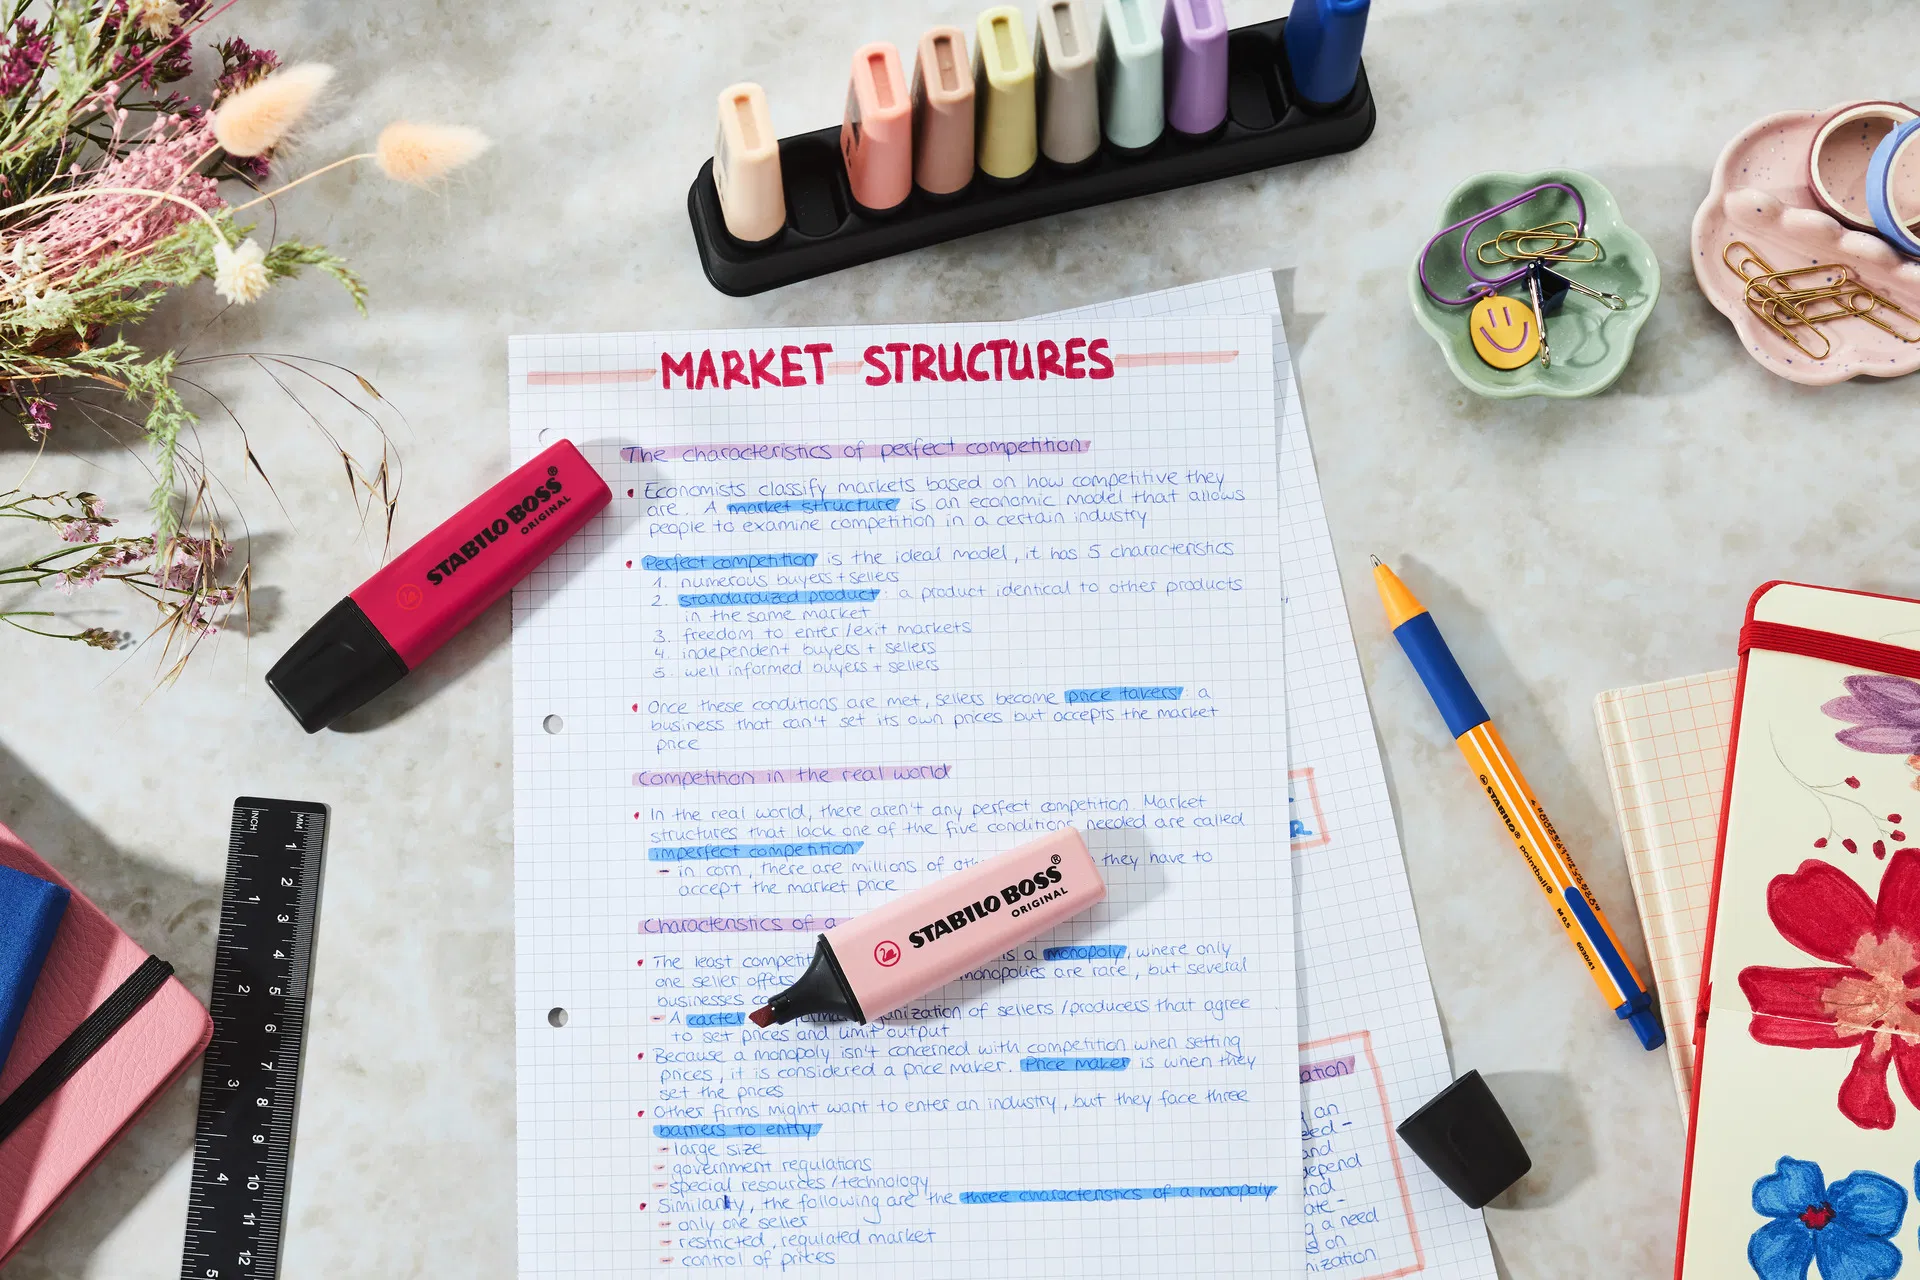 MARKET STRUCTURES
The characteristics of perfect competition
• Economists classify markets based on how competitive they
are. A market structure is an economic model that allows
people to examine competition in a certain industry
• Perfect competition is the ideal model, it has 5 characteristics
1. numerous buyers + sellers
2. standardized product: a product identical to other products
in the same market
3. freedom to enter/exit markets
4. independent buyers + sellers
5. well informed buyers + sellers
• Once these conditions are met, sellers become price takers: a
business that can't set its own prices but accepts the market
price
Competition in the real world
• In the real world, there aren't any perfect competition. Market
structures that lack one of the five conditions needed are called
imperfect competition
- in corn, there are millions of they have to
accept the market price
Characteristics of a
• The least is a monopoly, where only
one seller offers monopolies are rare, but several
businesses
- A cartel of sellers/producers that agree
to set prices and limit output
• Because a monopoly isn't concerned with competition when setting
prices, it is considered a price maker. Price maker is when they
set the prices
• Other firms might want to enter an industry, but they face three
barriers to entry:
- large size
- government regulations
- special resources/technology
• Similarly, the following are the three characteristics of a monopoly
- only one seller
- restricted, regulated market
- control of prices
STABILO BOSS®
ORIGINAL
STABILO BOSS®
ORIGINAL
STABILO® pointball®
M 0.5
6030/41
INCH
MM
1
2
3
4
5
6
7
8
9
10
11
12
1
2
3
4
5
ation
an
and
depend
and
ate-
g a need
s on
nization